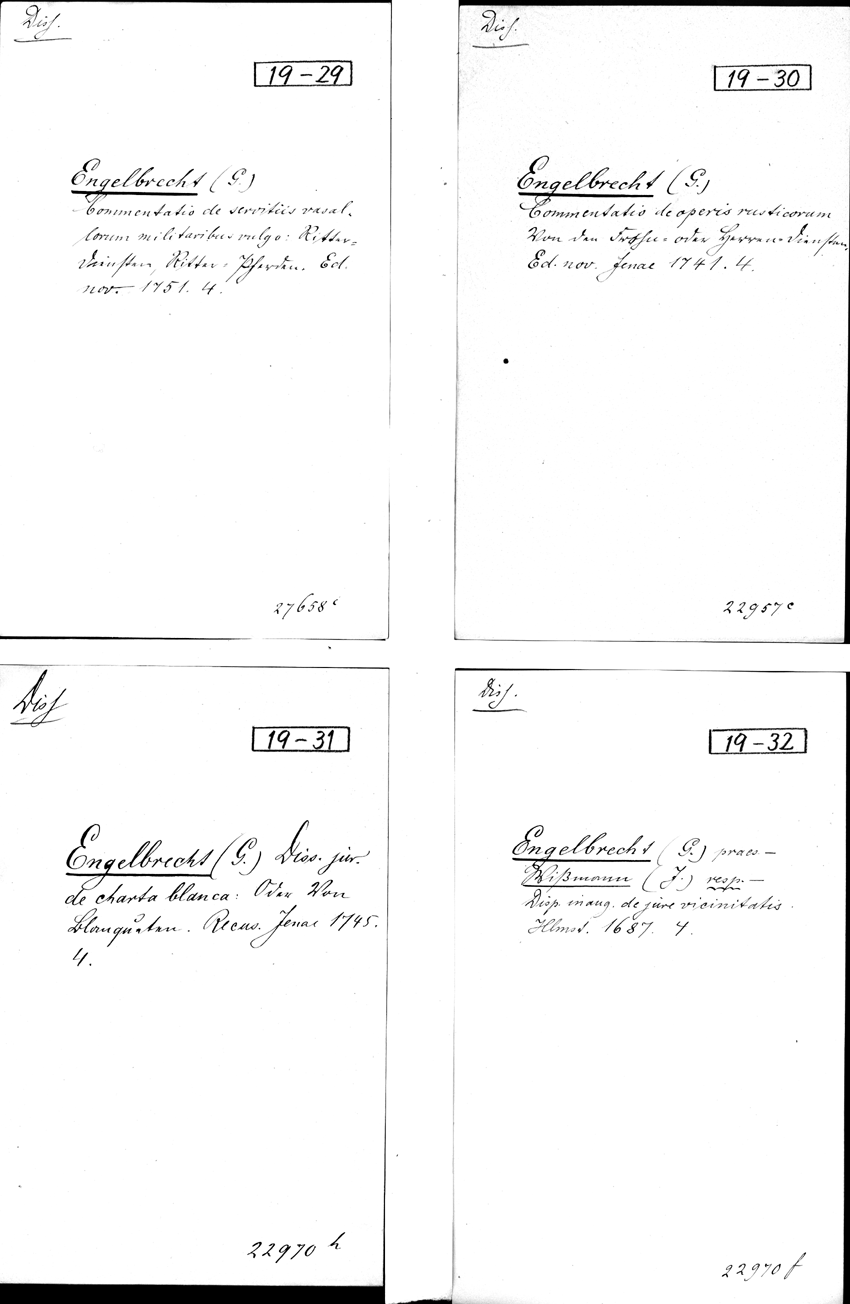 Diss.
19-29
Engelbrecht (G.)
Commentatio de servitiis vasal-
lorum militaribus vulgo: Ritter-
Diensten, Ritter-Pferden. Ed.
nov. 1751. 4.
27658 c
Diss.
19-30
Engelbrecht (G.)
Commentatio de operis rusticorum
Von den Frohn- oder Herren-Diensten.
Ed. nov. Jenae 1741. 4.
22957 c
Diss
19-31
Engelbrecht (G.) Diss. jur.
de charta blanca: Oder Von
Blanqueten. Recus. Jenae 1745.
4.
22970 h
Diss.
19-32
Engelbrecht (G.) praes.—
Wißmann (J.) resp.—
Disp. inaug. de jure vicinitatis.
Hlmst. 1687. 4.
22970 f